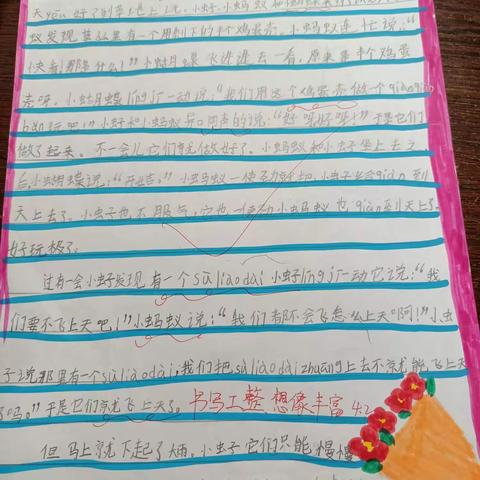 天yòu好了到草地上玩,小虾小蚂蚁和
蚁发现草丛里有一个用剩下的半个鸡蛋壳。小蚂蚁连忙说:“
快看,那是什么!”小蝴蝶飞进进去一看,原来是半个鸡蛋
壳呀。小蝴蝶líng jī一动说:“我们用这个鸡蛋壳做一个qiāoqiāo
bǎn玩吧!”小虾和小蚂蚁异口同声的说:“好呀好呀!”于是它们
做了起来。不一会儿它们就做好了。小蚂蚁和小虫子坐上去之
后,小蝴蝶说:“开始。”小蚂蚁一使劲就把小虫子给qiào到
天上去了。小虫子也不服气,它也一使劲小蚂蚁也qiào到天上了。
好玩极了。
过有一会小虫子发现有一个sù liào dài小虫子líng jī一动它说:“我
们要不飞上天吧!”小蚂蚁说:“我们都不会飞怎么上天啊!”小虫
子说那里有一个sù liào dài,我们把sù liào dài zhuāng上去不就能飞上天
了吗。”于是它们就飞上天了。书写工整 想像丰富 4.2
但马上就下起了大雨。小虫子它们只能慢慢